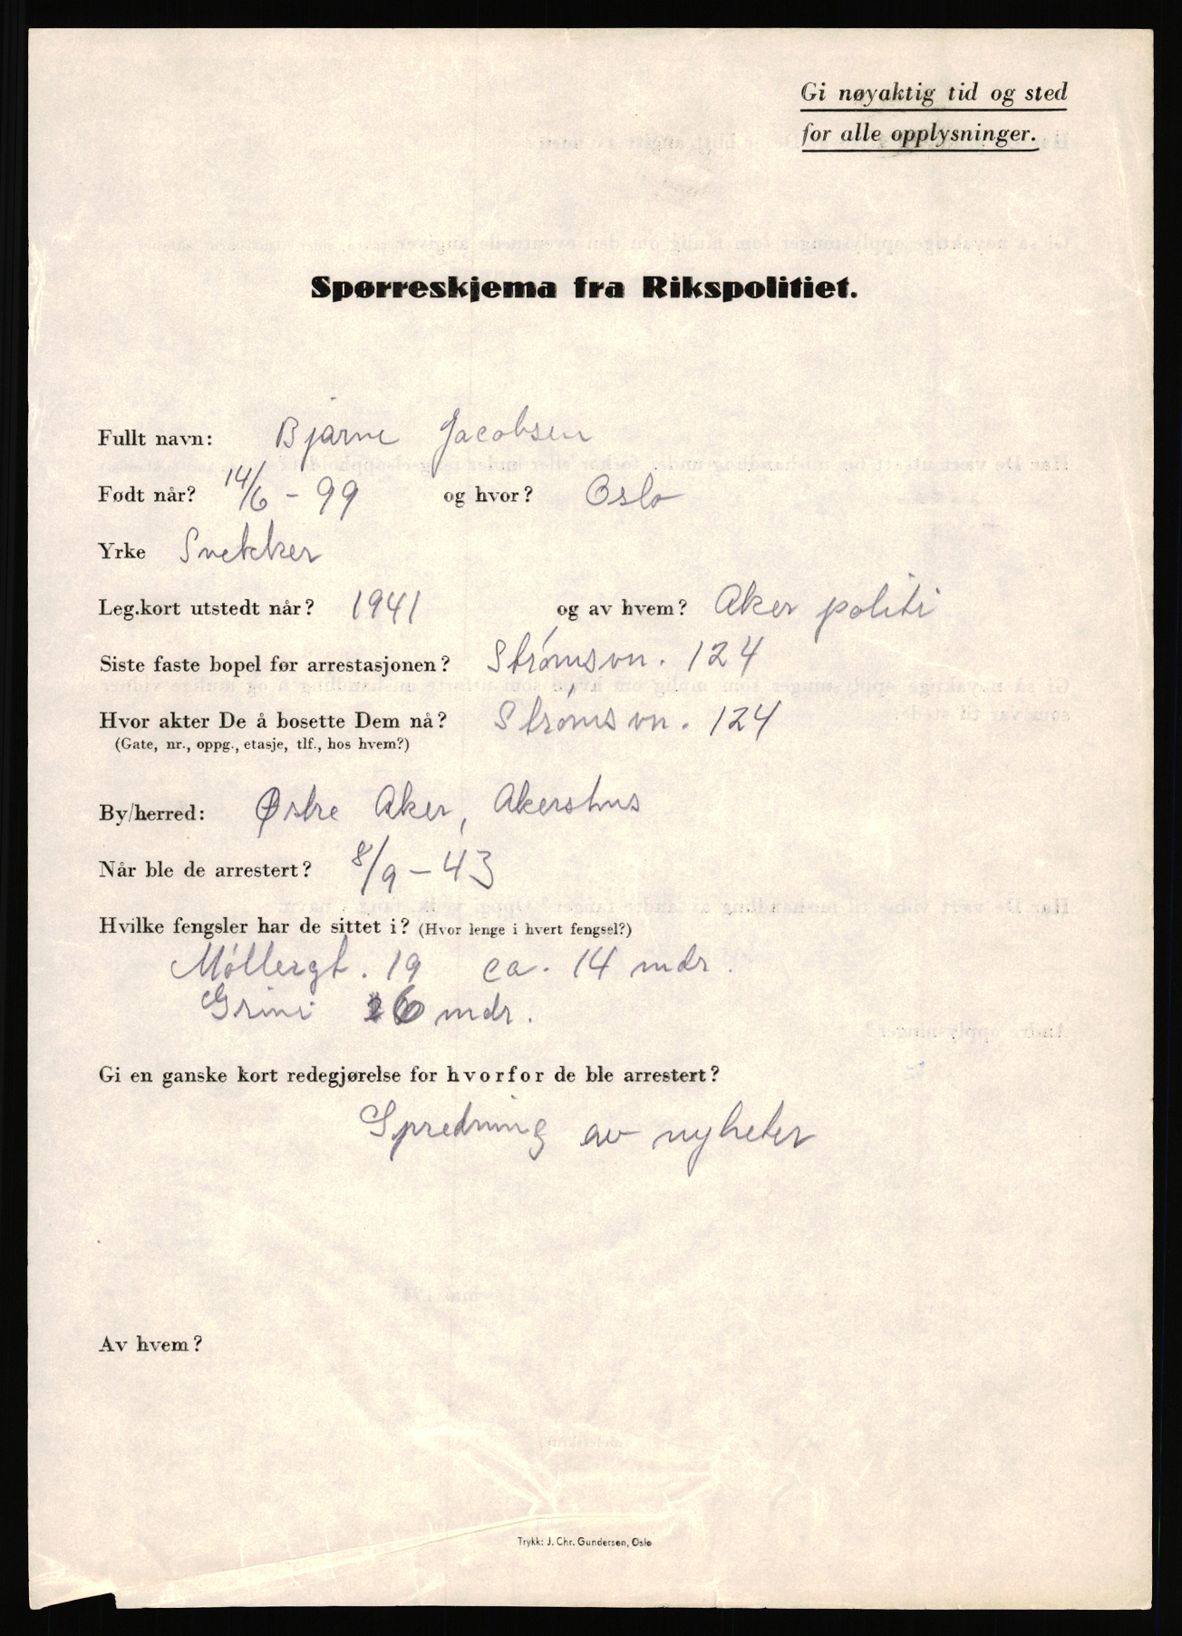 Gi nøyaktig tid og sted
for alle opplysninger.
Spørreskjema fra Rikspolitiet.
Fullt navn: Bjarne Jacobsen
Født når? 14/6 - 99 og hvor? Oslo
Yrke Snekker
Leg.kort utstedt når? 1941 og av hvem? Aker politi
Siste faste bopel før arrestasjonen? Strømsvn. 124
Hvor akter De å bosette Dem nå? Strømsvn. 124
(Gate, nr., oppg., etasje, tlf., hos hvem?)
By/herred: Østre Aker, Akershus
Når ble de arrestert? 8/9 - 43
Hvilke fengsler har de sittet i? (Hvor lenge i hvert fengsel?)
Møllergt. 19 ca. 14 mdr.
Grini 6 mdr.
Gi en ganske kort redegjørelse for hvorfor de ble arrestert?
Spredning av nyheter
Av hvem?
Trykk: J. Chr. Gundersen, Oslo